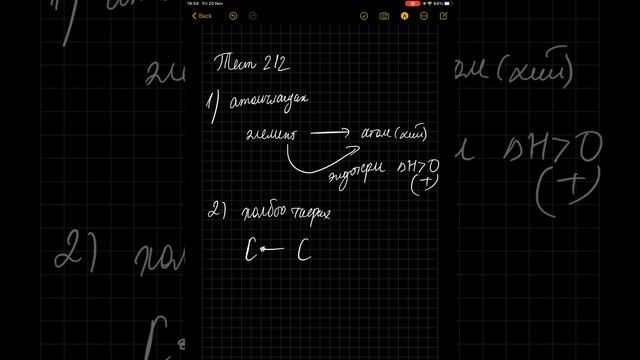 18:59 Fri 20 Nov
64%
Back
Тест 212
1) атомчлагдах
элемент → атом (хий)
эндотерм ΔH>0
(+)
2) холбоо тасрах
C — C